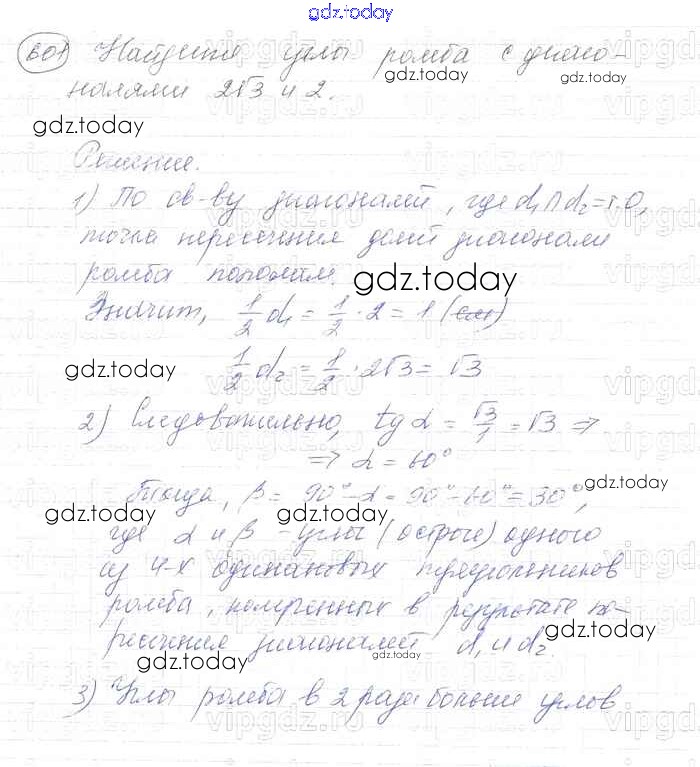 gdz.today
601 Найдите углы ромба с диаго-
налями 2√3 и 2.
gdz.today
gdz.today
gdz.today
Решение.
1) По св-ву диагоналей, где d₁∩d₂=т.О,
точка пересечения делит диагонали
ромба пополам.
gdz.today
Значит, 1/2 d₁ = 1/2 · 2 = 1 (см)
gdz.today 1/2 d₂ = 1/2 · 2√3 = √3
2) Следовательно, tg α = √3/1 = √3 ⇒
⇒ α = 60°
Тогда, β = 90° - α = 90° - 60° = 30°,
gdz.today
gdz.today
gdz.today
где α и β - углы (острые) одного
из 4-х одинаковых треугольников
ромба, в результате пе-
gdz.today
ресечения диагоналей d₁ и d₂.
gdz.today
gdz.today
3) Углы ромба в 2 раза больше углов